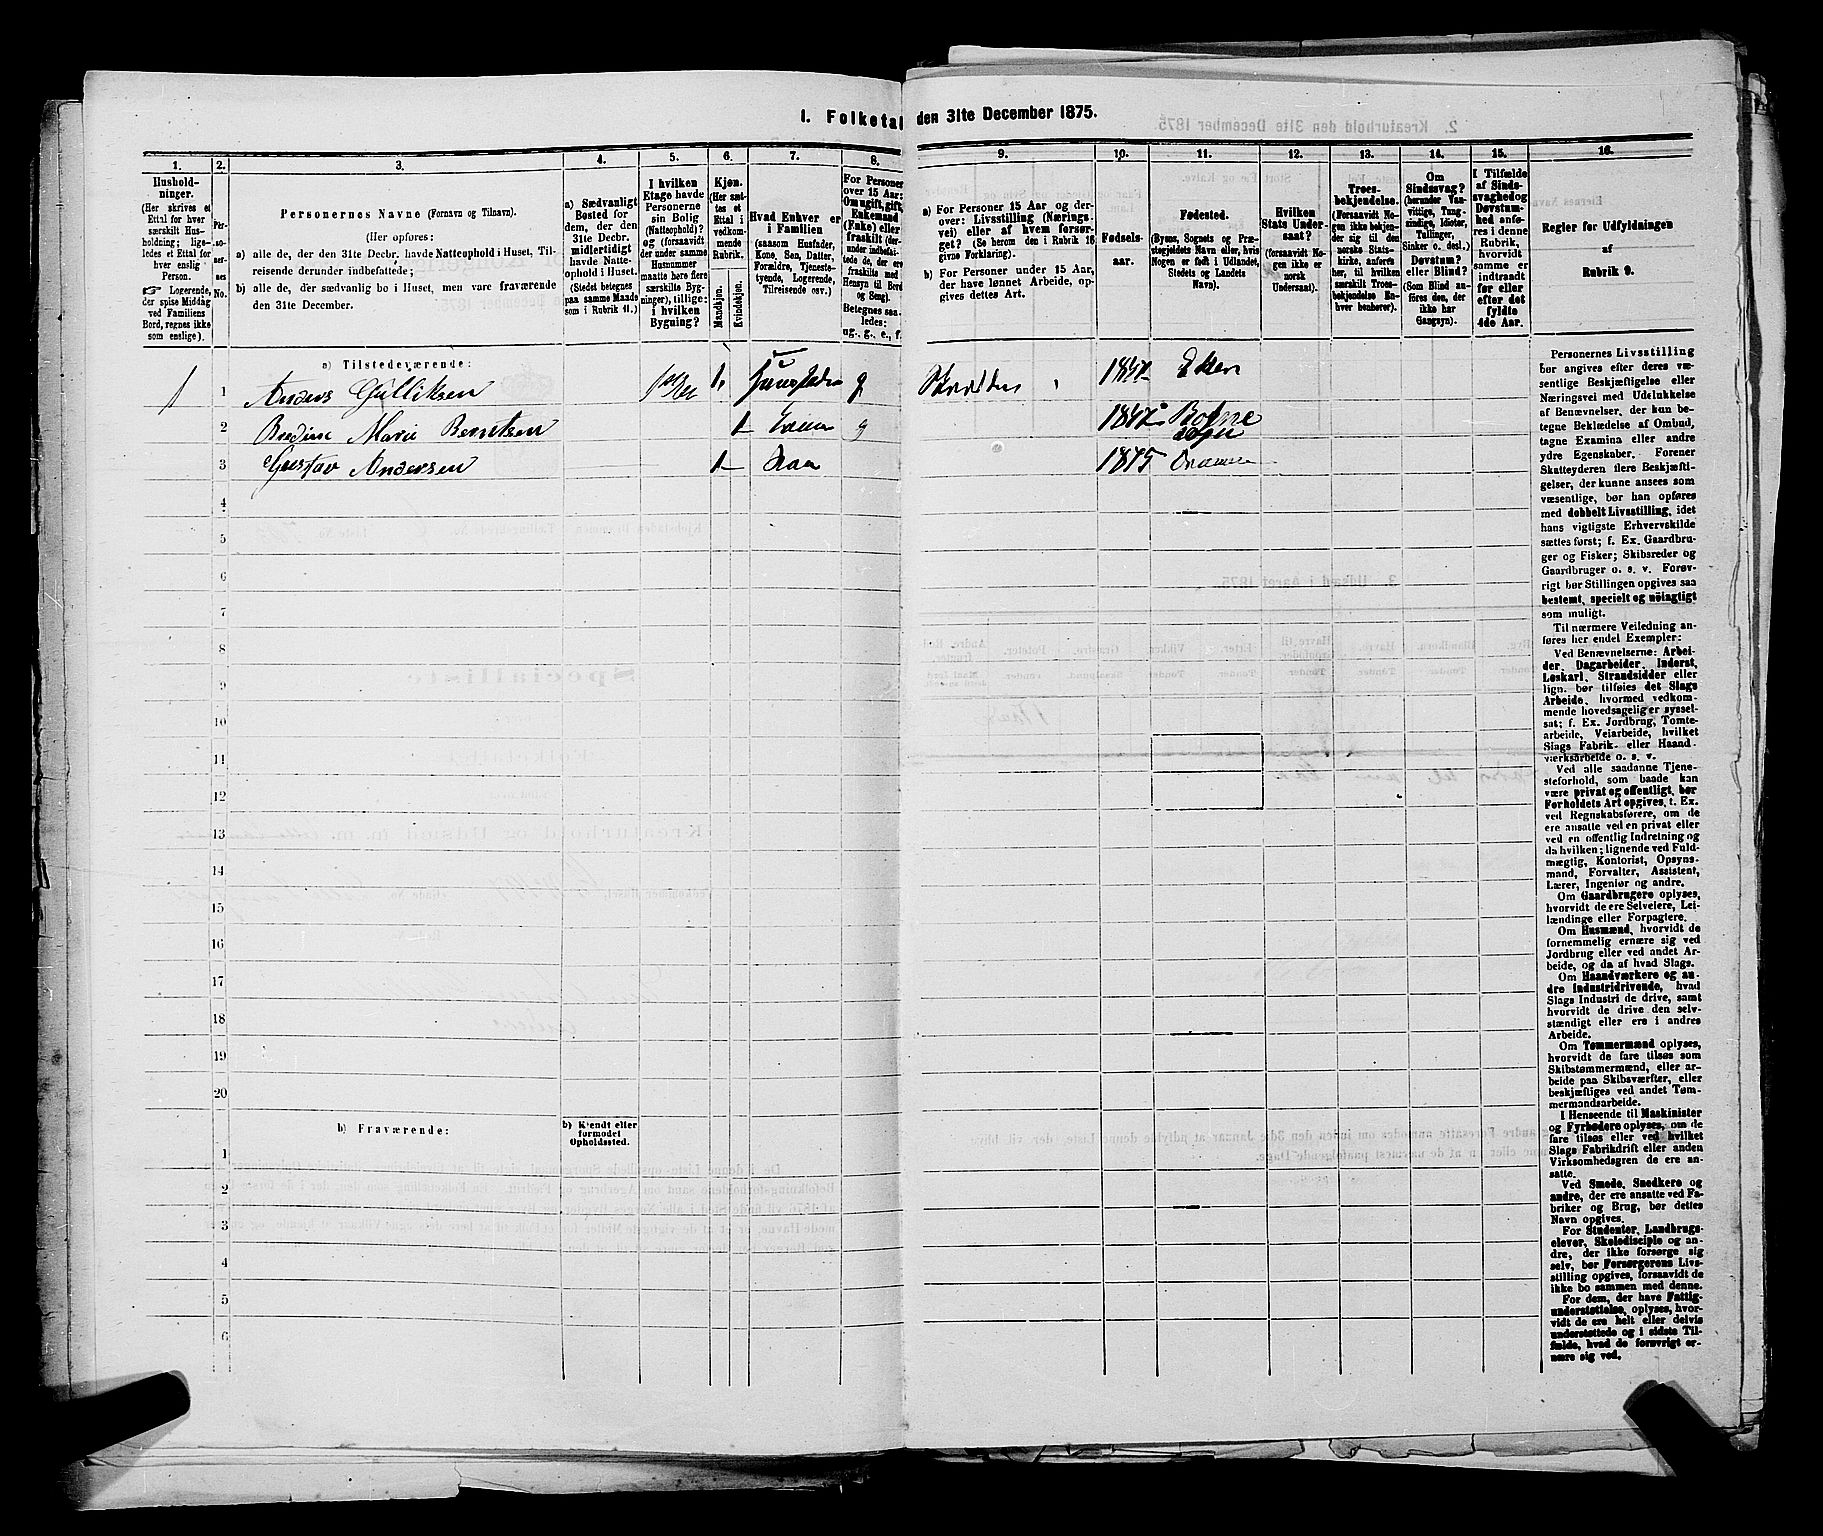 1. Folketal den 31te December 1875.
1. 2. 3. 4. 5. 6. 7. 8. 9. 10. 11. 12. 13. 14. 15. 16.
Hushold-
ninger.
(Her skrives et
Ettal for hver
særskilt Hus-
holdning; lige-
ledes et Ettal for
hver enslig
Person.
☞ Logerende,
der spise Middag
ved Familiens
Bord, regnes ikke
som enslige).
Per-
so-
ner-
nes
No.
Personernes Navne (Fornavn og Tilnavn).
(Her opføres:
a) alle de, der den 31te Decbr. havde Natteophold i Huset, Til-
reisende derunder indbefattede;
b) alle de, der sædvanlig bo i Huset, men vare fraværende
den 31te December.
a) Sædvanligt
Bosted for
dem, der den
31te Decbr.
midlertidigt
havde Natte-
ophold i Huset.
(Stedet betegnes
paa samme Maade
som i Rubrik 11.)
I hvilken
Etage havde
Personerne
sin Bolig
(Natteophold)?
og (forsaavidt
der under samme
Husnummer
maatte høre flere
særskilte Byg-
ninger), tillige:
i hvilken
Bygning?
Kjøn.
(Her sæt-
tes et
Ettal i
vedkom-
mende
Rubrik.
Mandkjøn.
Kvindekjøn.
Hvad Enhver er
i Familien
(saasom Husfader,
Kone, Søn, Datter,
Forældre, Tjeneste-
tyende, Logerende,
Tilreisende osv.)
For Personer
over 15 Aar:
Om ugift, gift,
Enkemand
(Enke) eller
fraskilt (der-
under indbefat-
tede de, der ere
fraskilte med
Hensyn til Bord
og Seng).
Betegnes saa-
ledes:
ug., g., e., f.
a) For Personer 15 Aar og der-
over: Livsstilling (Nærings-
vei) eller af hvem forsør-
get? (Se herom den i Rubrik 16
givne Forklaring).
b) For Personer under 15 Aar,
der have lønnet Arbeide, op-
gives dettes Art.
Fødsels-
aar.
Fødested.
(Byens, Sognets og Præ-
stegjeldets Navn eller, hvis
Nogen er født i Udlandet,
Stedets og Landets
Navn).
Hvilken
Stats Under-
saat?
(forsaavidt No-
gen ikke er
norsk
Undersaat).
Troes-
bekjendelse.
(Forsaavidt No-
gen ikke bekjen-
der sig til den
norske Stats-
kirke, anføres
her, til hvilken
særskilt Troes-
bekjendelse En-
hver henhører).
Om
Sindssvag?
(herunder Van-
vittige, Tung-
sindige, Idioter,
Tullinger,
Sinker o. desl.)
Døvstum?
eller Blind?
(Som Blind an-
føres den, der
ikke har
Gangsyn).
I Tilfælde
af Sinds-
svaghed og
Døvstum-
hed anfø-
res i denne
Rubrik,
hvorvidt
samme er
indtraadt
før eller
efter det
fyldte
4de Aar.
Regler for Udfyldningen
af
Rubrik 9.
a) Tilstedeværende:
1 1 Anders Gulliksen 1 g 1841 Eker
2 Bredine Marie Berntsen 1 g 1842 Botne Sogn
3 Gustav Andersen 1 1875
4
5
6
7
8
9
10
11
12
13
14
15
16
17
18
19
20
b) Fraværende:
b) Kjendt eller
formodet
Opholdssted.
1
2
3
4
5
6
Personernes Livsstilling
bør angives efter deres væ-
sentlige Beskjæftigelse eller
Næringsvei med Udelukkelse
af Benævnelser, der kun be-
tegne Beklædelse af Ombud,
tagne Examina eller andre
ydre Egenskaber. Forener
Skatteyderen flere Beskjæfti-
gelser, der kunne ansees som
væsentlige, bør han opføres
med dobbelt Livsstilling, idet
hans vigtigste Erhvervskilde
sættes først; f. Ex. Gaardbru-
ger og Fisker; Skibsreder og
Gaardbruger o. s. v. Forøv-
rigt bør Stillingen opgives saa
bestemt, specielt og nöiagtigt
som muligt.
Til nærmere Veiledning an-
føres her endel Exempler:
Ved Benævnelserne: Arbei-
der, Dagarbeider, Inderst,
Løskarl, Strandsidder eller
lign. bør tilføies det Slags
Arbeide, hvormed vedkom-
mende hovedsagelig er syssel-
sat; f. Ex. Jordbrug, Tomte-
arbeide, Veiarbeide, hvilket
Slags Fabrik- eller Haand-
værksarbeide o. s. v.
Ved alle saadanne Tjene-
steforhold, som baade kan
være privat og offentligt, bør
Forholdets Art opgives, t. Ex.
ved Regnskabsførere, om de
ere ansatte ved en privat eller
ved en offentlig Indretning og
da hvilken; lignende ved Fuld-
mægtig, Kontorist, Opsyns-
mand, Forvalter, Assistent,
Lærer, Ingeniør og andre.
Om Gaardbrugere oplyses,
hvorvidt de ere Selveiere, Lei-
lændinge eller Forpagtere.
Om Husmænd, hvorvidt de
fornemmelig ernære sig ved
Jordbrug eller ved andet Ar-
beide, og da af hvad Slags.
Om Haandværkere og an-
dre industridrivende, hvad
Slags Industri de drive, samt
hvorvidt de drive den selv-
stændigt eller ere i andres
Arbeide.
Om Tømmermænd oplyses,
hvorvidt de fare tilsøs som
Skibstømmermænd, eller ar-
beide paa Skibsværfter, eller
beskjæftiges ved andet Tøm-
mermandsarbeide.
I Henseende til Maskinister
og Fyrbødere oplyses, om de
fare tilsøs eller ved hvilket
Slags Fabrikdrift eller anden
Virksomhedsgren de ere an-
satte.
Ved Smede, Snedkere og
andre, der ere ansatte ved Fa-
briker og Brug, bør dettes
Navn opgives.
For Studenter, Landbrugs-
elever, Skoledisciple og an-
dre, der ikke forsørge sig
selv, bør Forsørgerens Livs-
stilling opgives, forsaavidt de
ikke bo sammen med denne.
For dem, der have Fattig-
understøttelse, oplyses, hvor-
vidt de ere helt eller delvis
understøttede og i sidste Til-
fælde, hvad de forøvrigt er-
nære sig ved.